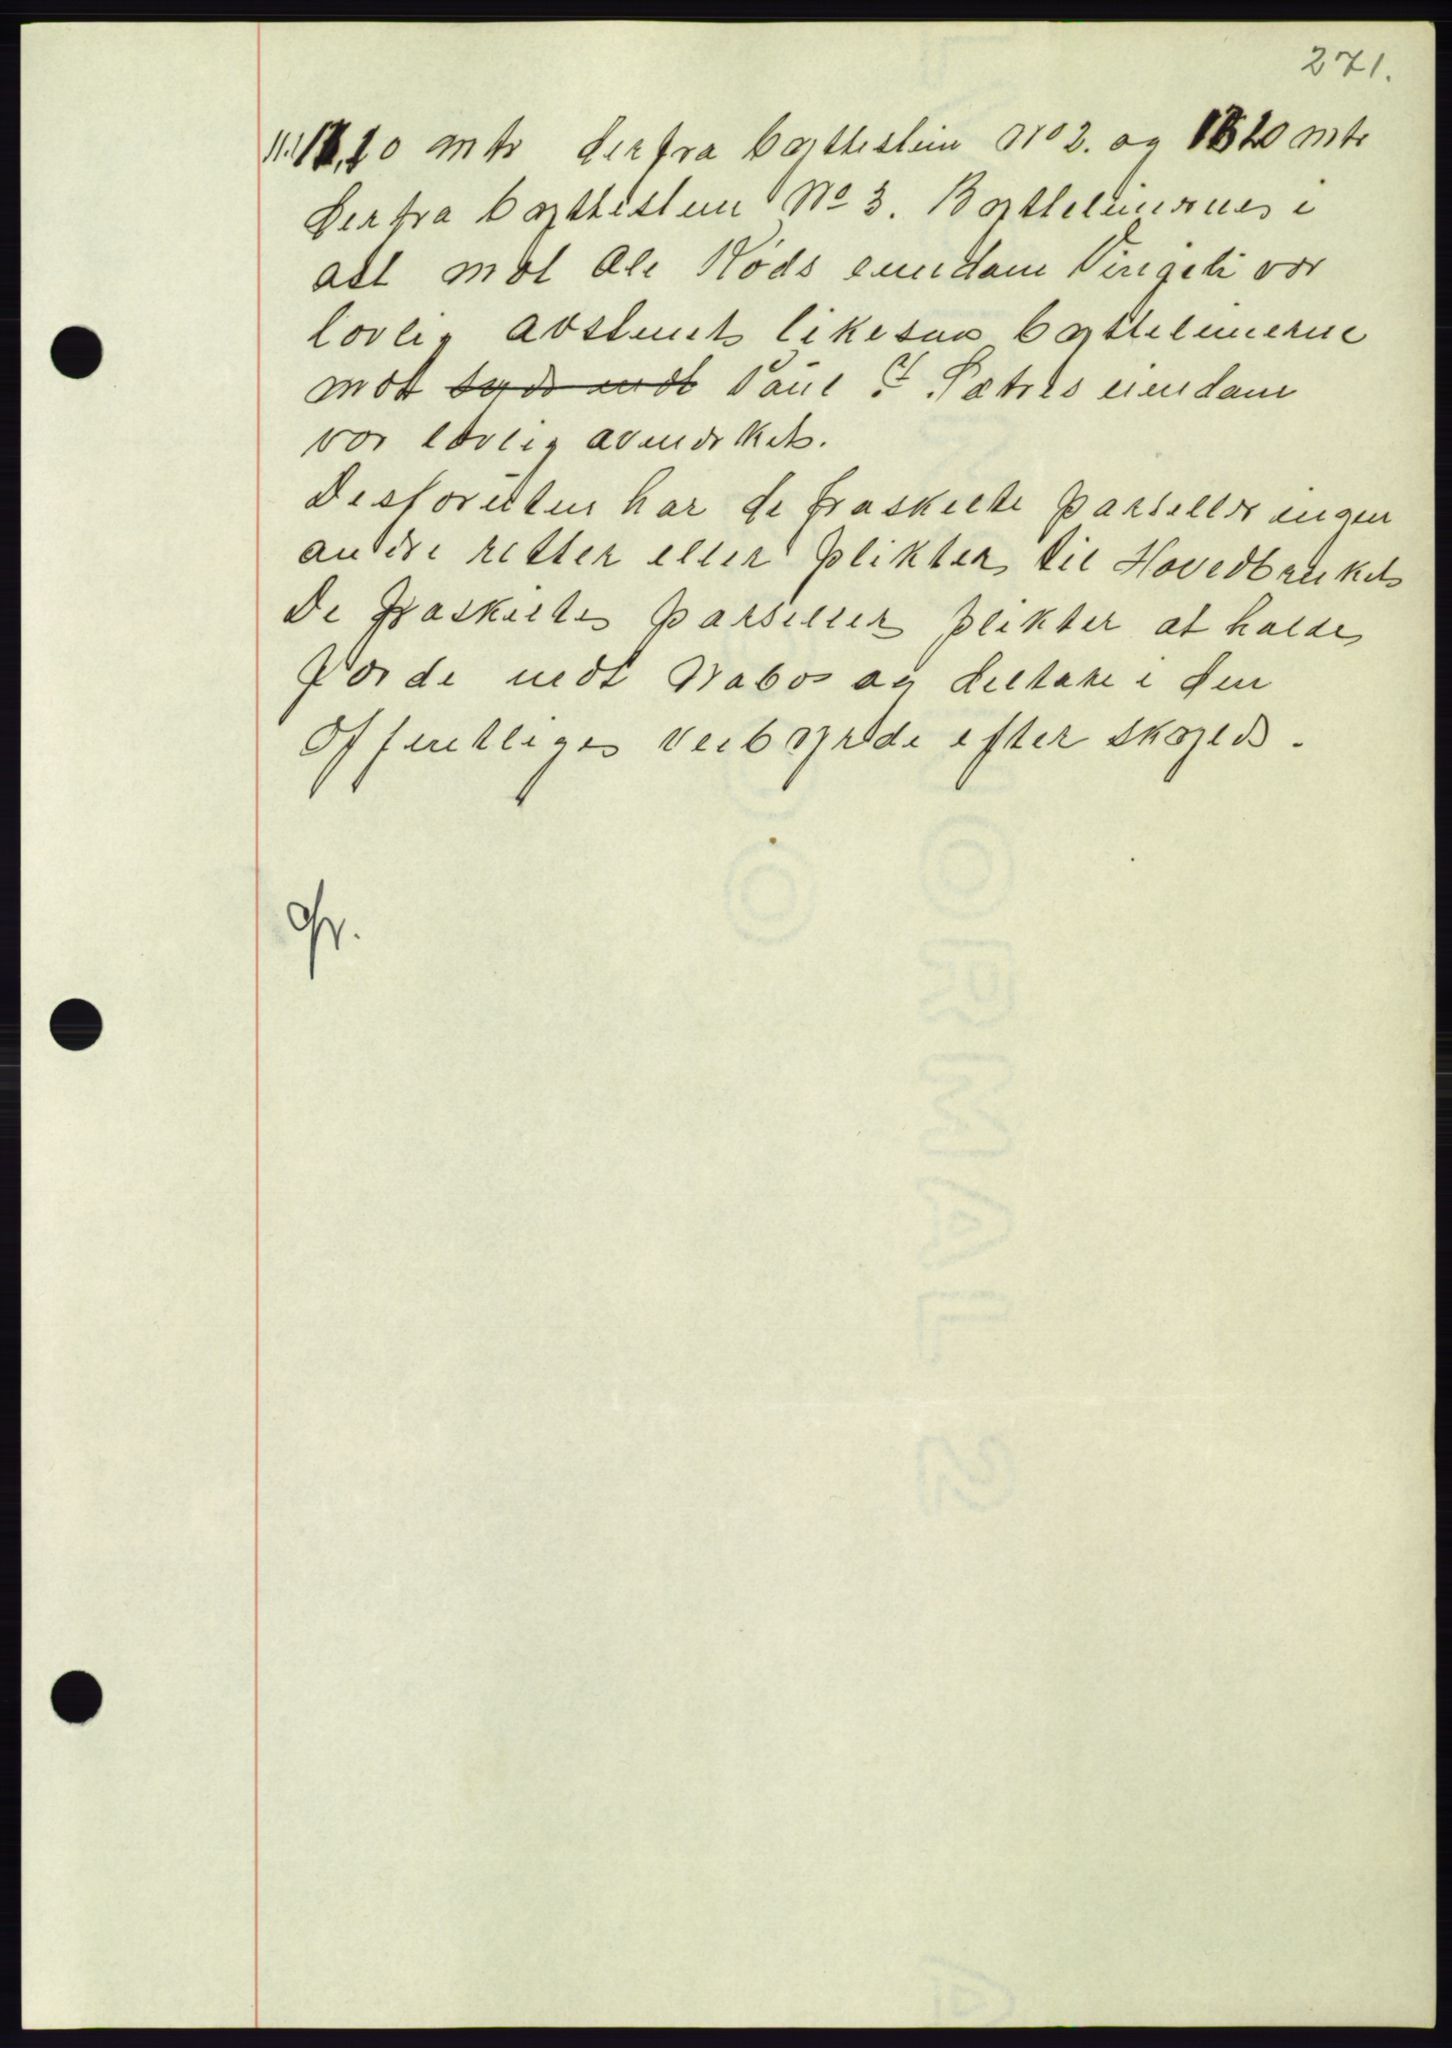 271.
mtr derfra byttestein No 2. og mtr
derfra byttestein No 3. Byttelinernes i
ast mot Ole Nøds eiendom Vingeli vor
lovlig avstenet likesaa byttelinierne
mot syds mot Paul Sætres eiendom
vor lovlig avmerket.
Desforuten har de fraskilte parseller ingen
andre retter eller plikter til Hovedbruket
De fraskilte parseller plikter at holde
Jorde mot Nabos og deltake i den
Offentlige veibyrde efter skyld.